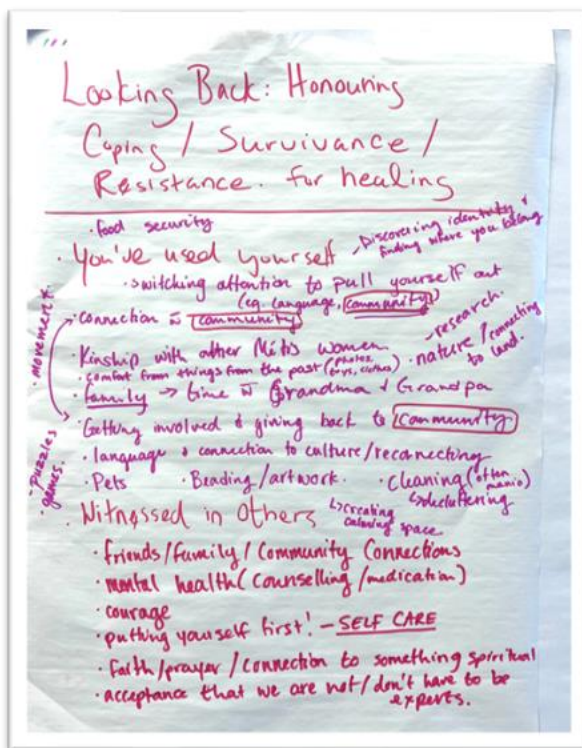 Looking Back: Honouring
Coping / Survivance /
Resistance. for healing
· food security
- Discovering identity &
finding where you belong
· You've used yourself
· switching attention to pull yourself out
(eg language, community)
· connection w̄ community
· Kinship with other Métis women
- research.
· nature / connecting
to land.
· comfort from things from the past (photos,
toys, clothes)
· family → time w̄ Grandma & Grandpa
· movement.
· Getting involved & giving back to community
· language & connection to culture/reconnecting
· Pets · Beading/artwork. · Cleaning (often
manic)
↳ decluttering
↳ creating
calming space
· puzzles
· games.
· Witnessed in Others
· friends/family/Community Connections
· mental health (counselling/medication)
· courage
· putting yourself first! - SELF CARE
· faith/prayer/connection to something spiritual
· acceptance that we are not/don't have to be
experts.